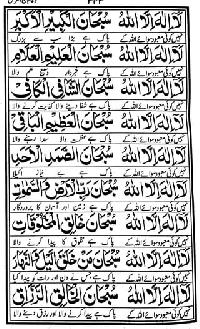 لَا إِلٰهَ إِلَّا اللهُ سُبْحَانَ الْكَبِيْرِ الْاَكْبَرِ
نہیں کوئی معبود سوائے اللہ کے پاک ہے بڑا سب سے بزرگ
لَا إِلٰهَ إِلَّا اللهُ سُبْحَانَ الْعَلِيْمِ الْعَلَّامِ
نہیں کوئی معبود سوائے اللہ کے پاک ہے
لَا إِلٰهَ إِلَّا اللهُ سُبْحَانَ الشَّافِي الْكَافِي
نہیں کوئی معبود سوائے اللہ کے پاک ہے شفا دینے والا کفایت کرنے والا
لَا إِلٰهَ إِلَّا اللهُ سُبْحَانَ الْعَظِيْمِ الْبَاقِي
نہیں کوئی معبود سوائے اللہ کے پاک ہے
لَا إِلٰهَ إِلَّا اللهُ سُبْحَانَ الصَّمَدِ الْاَحَدِ
نہیں کوئی معبود سوائے اللہ کے پاک ہے بے نیاز اکیلا
لَا إِلٰهَ إِلَّا اللهُ سُبْحَانَ رَبِّ الْاَرْضِ وَالسَّمٰوٰتِ
نہیں کوئی معبود سوائے اللہ کے پاک ہے زمین اور آسمان کا پروردگار
لَا إِلٰهَ إِلَّا اللهُ سُبْحَانَ خَالِقِ الْمَخْلُوْقَاتِ
نہیں کوئی معبود سوائے اللہ کے پاک ہے مخلوق کا پیدا کرنے والا
لَا إِلٰهَ إِلَّا اللهُ سُبْحَانَ مَنْ خَلَقَ الَّيْلَ وَالنَّهَارَ
نہیں کوئی معبود سوائے اللہ کے پاک ہے جس نے دن اور رات کو پیدا کیا
لَا إِلٰهَ إِلَّا اللهُ سُبْحَانَ الْخَالِقِ الرَّزَّاقِ
نہیں کوئی معبود سوائے اللہ کے پاک ہے پیدا کرنے والا اور رزق دینے والا